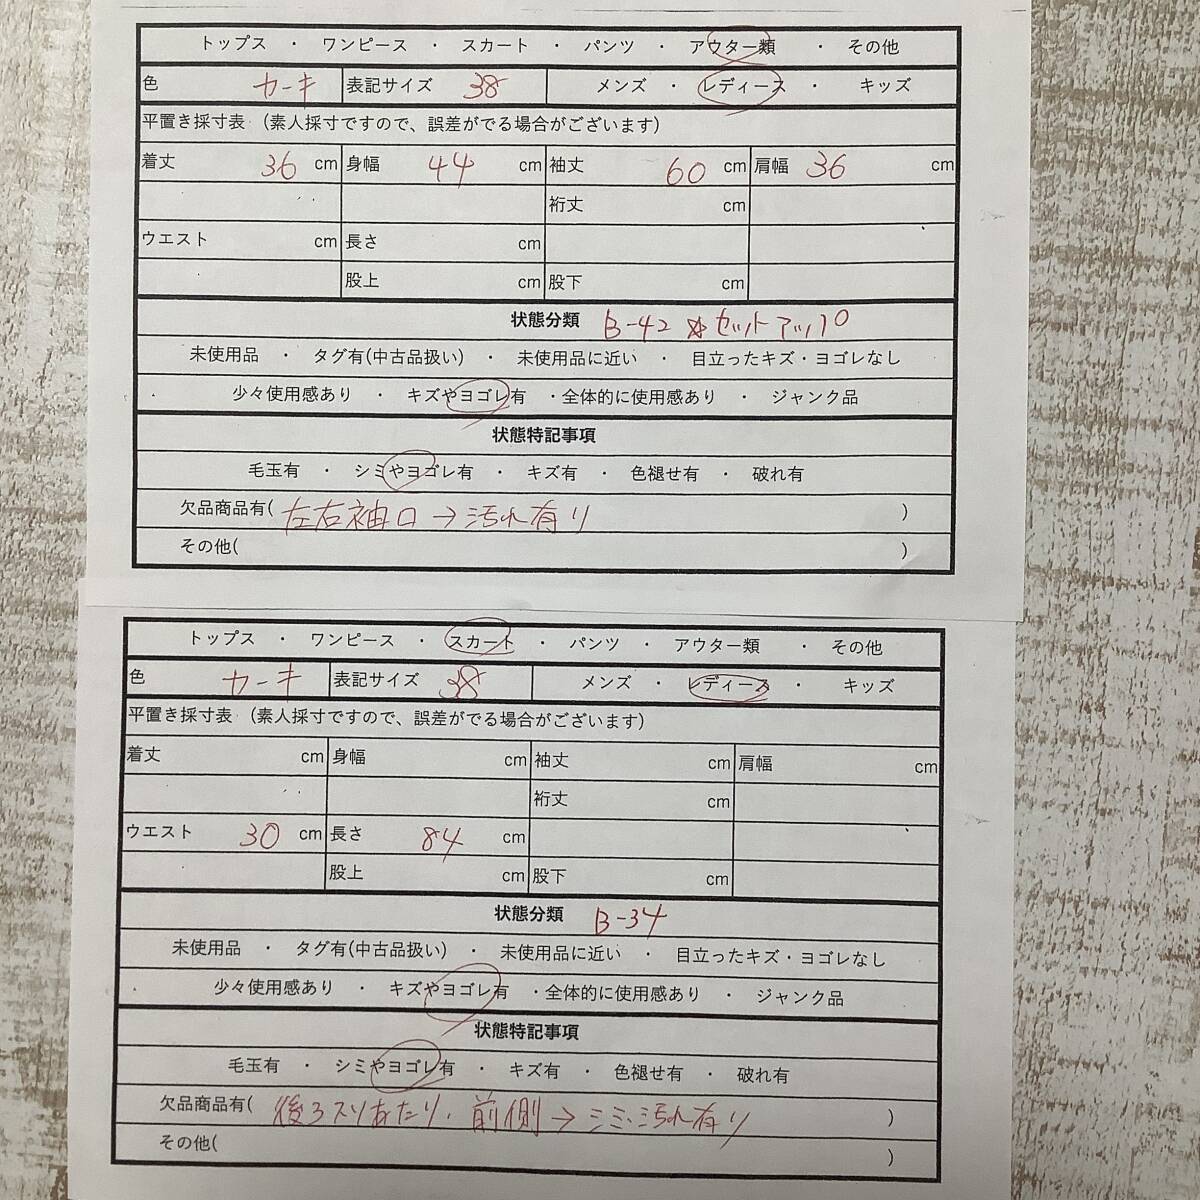 トップス ・ ワンピース ・ スカート ・ パンツ ・ アウター類 ・ その他
色 カーキ 表記サイズ 38 メンズ ・ レディース ・ キッズ
平置き採寸表 (素人採寸ですので、誤差がでる場合がございます)
着丈 36 cm 身幅 44 cm 袖丈 60 cm 肩幅 36 cm
裄丈 cm
ウエスト cm 長さ cm
股上 cm 股下 cm
状態分類 B-42 ☆セットアップ
未使用品 ・ タグ有(中古品扱い) ・ 未使用品に近い ・ 目立ったキズ・ヨゴレなし
少々使用感あり ・ キズやヨゴレ有 ・全体的に使用感あり ・ ジャンク品
状態特記事項
毛玉有 ・ シミやヨゴレ有 ・ キズ有 ・ 色褪せ有 ・ 破れ有
欠品商品有( 左右袖口→汚れ有り )
その他( )
トップス ・ ワンピース ・ スカート ・ パンツ ・ アウター類 ・ その他
色 カーキ 表記サイズ 38 メンズ ・ レディース ・ キッズ
平置き採寸表 (素人採寸ですので、誤差がでる場合がございます)
着丈 cm 身幅 cm 袖丈 cm 肩幅 cm
裄丈 cm
ウエスト 30 cm 長さ 84 cm
股上 cm 股下 cm
状態分類 B-34
未使用品 ・ タグ有(中古品扱い) ・ 未使用品に近い ・ 目立ったキズ・ヨゴレなし
少々使用感あり ・ キズやヨゴレ有 ・全体的に使用感あり ・ ジャンク品
状態特記事項
毛玉有 ・ シミやヨゴレ有 ・ キズ有 ・ 色褪せ有 ・ 破れ有
欠品商品有( 後ろスリあたり・前側→シミ・汚れ有り )
その他( )